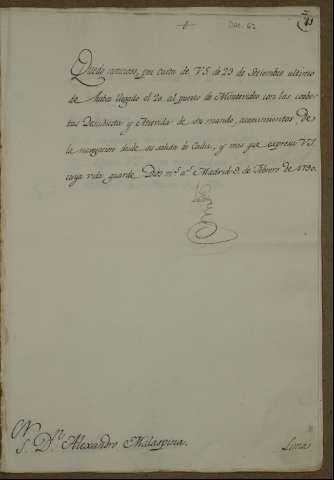 Quedo noticioso, por Carta de V.S. de 23 de Setiembre ultimo
de haber llegado el 20 al puerto de Montevideo con las corbe-
tas Descubierta y Atrevida de su mando, acaecimientos de
la navegacion desde su salida de Cadiz, y mas que expresa V.S.
cuya vida guarde Dios m.s a.s Madrid 9. de Febrero de 1790.
S. Dn. Alexandro Malaspina.
Lima